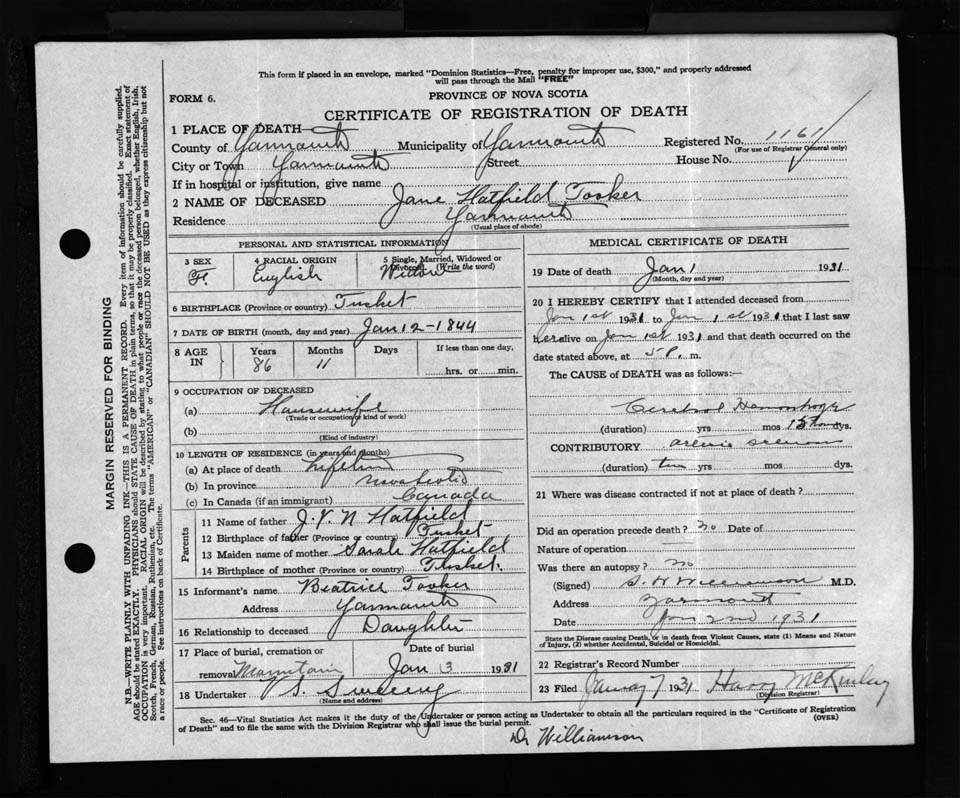 This form if placed in an envelope, marked "Dominion Statistics—Free, penalty for improper use, $300," and properly addressed
will pass through the Mail "FREE"
FORM 6.
PROVINCE OF NOVA SCOTIA
CERTIFICATE OF REGISTRATION OF DEATH
1 PLACE OF DEATH
County of Yarmouth Municipality of Yarmouth Registered No. 1161
(For use of Registrar General only)
City or Town Yarmouth Street House No.
If in hospital or institution, give name
2 NAME OF DECEASED Jane Hatfield Tooker
Residence Yarmouth
(Usual place of abode)
PERSONAL AND STATISTICAL INFORMATION
3 SEX F. 4 RACIAL ORIGIN English 5 Single, Married, Widowed or Divorced (Write the word) Widow
6 BIRTHPLACE (Province or country) Tusket
7 DATE OF BIRTH (month, day and year) Jan 12-1844
8 AGE IN Years 86 Months 11 Days If less than one day, hrs. or min.
9 OCCUPATION OF DECEASED
(a) Housewife
(Trade or occupation or kind of work)
(b)
(Kind of industry)
10 LENGTH OF RESIDENCE (in years and months)
(a) At place of death lifetime
(b) In province Nova Scotia
(c) In Canada (if an immigrant) Canada
Parents
11 Name of father J. V. N Hatfield
12 Birthplace of father (Province or country) Tusket
13 Maiden name of mother Sarah Hatfield
14 Birthplace of mother (Province or country) Tusket.
15 Informant's name Beatrice Tooker
Address Yarmouth
16 Relationship to deceased Daughter
17 Place of burial, cremation or removal Mountain Date of burial Jan 3 1931
18 Undertaker V. S. Sweeny
(Name and address)
MEDICAL CERTIFICATE OF DEATH
19 Date of death Jan 1 1931
(Month, day and year)
20 I HEREBY CERTIFY that I attended deceased from
Jan 1st 1931 to Jan 1st 1931 that I last saw
her alive on Jan 1st 1931 and that death occurred on the
date stated above, at 5 P. m.
The CAUSE of DEATH was as follows:—
Cerebral Hemorrhage
(duration) yrs mos 15 hours dys.
CONTRIBUTORY
(duration) ten yrs mos dys.
21 Where was disease contracted if not at place of death?
Did an operation precede death? no Date of
Nature of operation
Was there an autopsy? no
(Signed) S. W Williamson M.D.
Address Yarmouth
Date Jan 2nd 1931
State the Disease causing Death, or in death from Violent Causes, state (1) Means and Nature
of Injury, (2) whether Accidental, Suicidal or Homicidal.
22 Registrar's Record Number
23 Filed January 7 1931 Harry McKinley
(Division Registrar)
Sec. 46—Vital Statistics Act makes it the duty of the Undertaker or person acting as Undertaker to obtain all the particulars required in the "Certificate of Registration
of Death" and to file the same with the Division Registrar who shall issue the burial permit. (OVER)
Dr Williamson
MARGIN RESERVED FOR BINDING
N.B.—WRITE PLAINLY WITH UNFADING INK—THIS IS A PERMANENT RECORD. Every item of information should be carefully supplied.
AGE should be stated EXACTLY. PHYSICIANS should STATE CAUSE OF DEATH in plain terms, so that it may be properly classified. Exact statement of
OCCUPATION is very important. RACIAL ORIGIN will be described by stating to what people or race the deceased person belonged, whether English, Irish,
Scotch, French, German, Russian, Ruthenian, etc. The terms "AMERICAN" or "CANADIAN" SHOULD NOT BE USED as they express citizenship but not
a race or people. See instructions on back of Certificate.